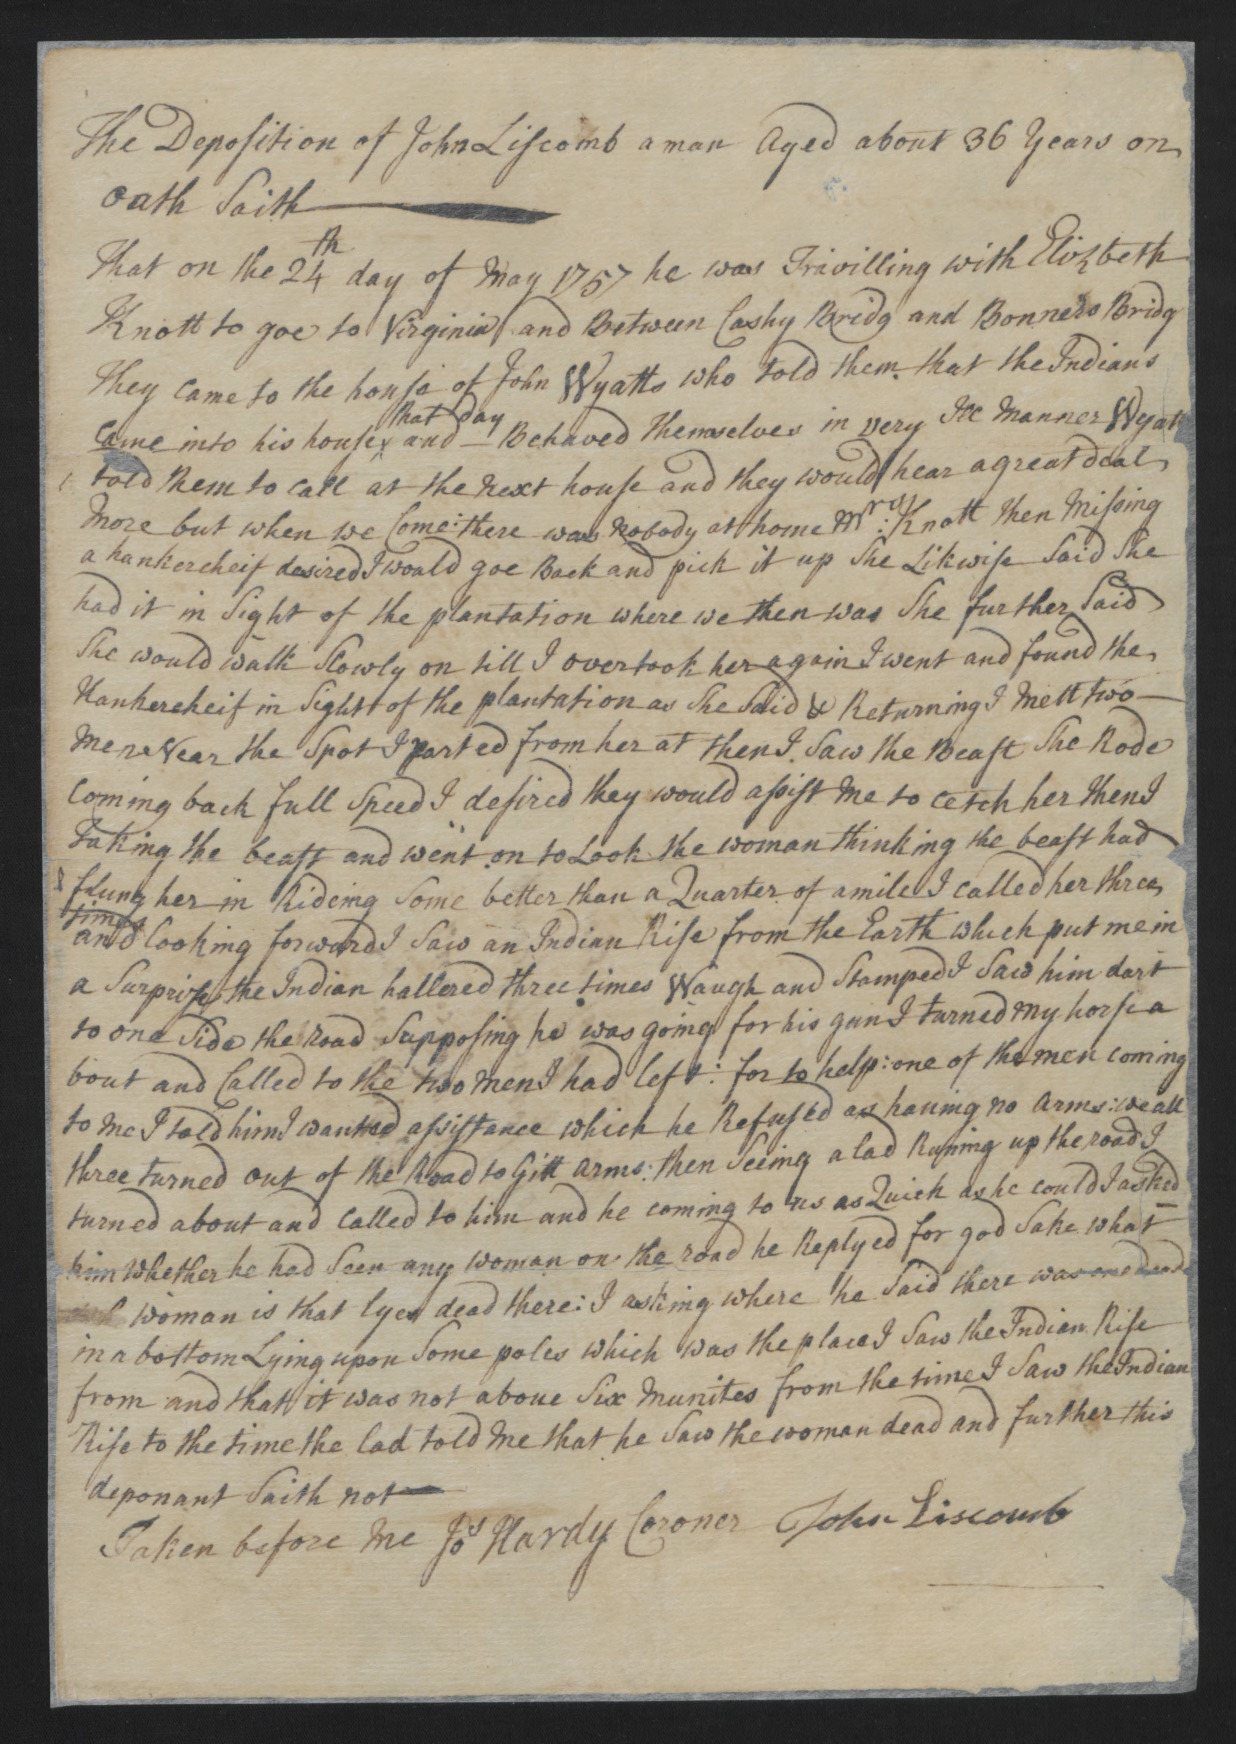 The Deposition of John Liscomb a man Aged about 36 Years on
oath Saith
That on the 24th day of May 1757 he was Travilling with Elizbeth
Knott to goe to Virginia and Between Cashy Bridg and Bonners Bridg
They came to the house of John Wyatts who told them that the Indians
that day
came into his house and Behaved themselves in very Ill Manner Wyatt
told them to call at the next house and they would hear a great deal
More but when we Come: there was nobody at home Mrs: Knott then Missing
a hankercheif desired I would goe Back and pick it up She Likwise Said She
had it in Sight of the plantation where we then was She further Said
She would walk Slowly on till I overtook her again I went and found the
Hankercheif in Sight of the plantation as She Said & Returning I Mett two
Men Near the Spot I parted from her at then I Saw the Beast She Rode
Coming back full Speed I desired they would assist Me to Cetch her then I
Taking the beast and went on to Look the woman thinking the beast had
flung her in Rideing Some better than a Quarter of a mile I called her three
times
and looking forward I Saw an Indian Rise from the Earth which put me in
a Surprize the Indian hallered three times Waugh and Stamped I Saw him dart
to one Side the Road Supposing he was going for his gun I turned My horse a
bout and Called to the two Men I had left: for to help: one of the men coming
to Me I told him I wanted assistance which he Refused as having no Arms: we all
three turned out of the Road to Gitt Arms: then Seeing a lad Runing up the road I
turned about and Called to him and he coming to us as Quick as he could I asked
him whether he had Seen any woman on the road he Replyed for god Sake what
woman is that lyes dead there: I asking where he Said there was one dead
in a bottom Lying upon Some poles which was the place I Saw the Indian Rise
from and that it was not above Six Munites from the time I Saw the Indian
Rise to the time the lad told Me that he Saw the woman dead and further this
deponant Saith not
Taken before Me Jos Hardy Coroner John Liscomb